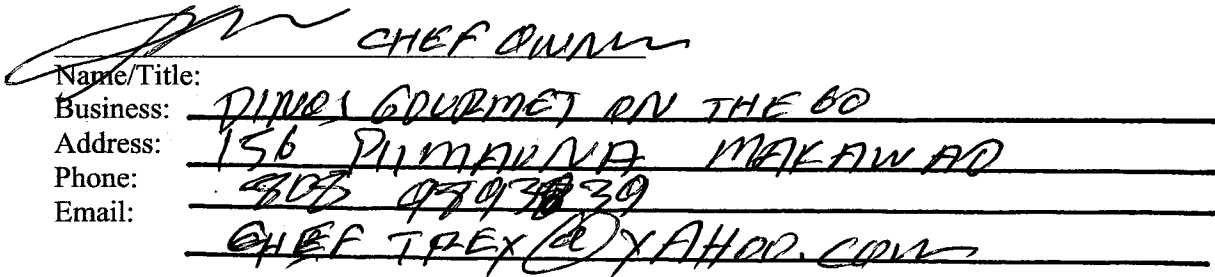 CHEF OWNER
Name/Title:
Business: DINOS GOURMET ON THE GO
Address: 156 MAKAWAO
Phone: 808
Email:
CHEFTREX@YAHOO.COM